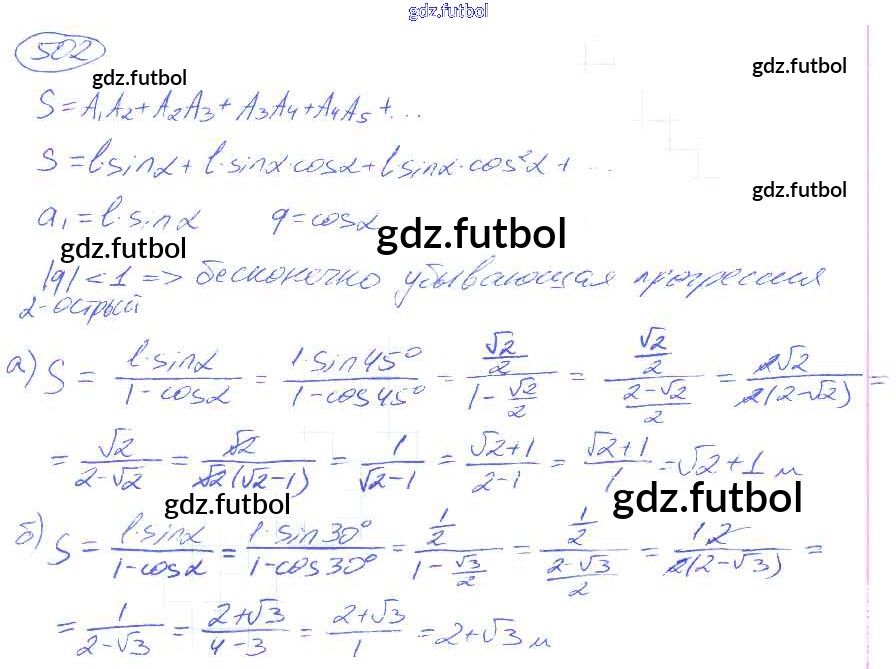 gdz.futbol
502
gdz.futbol
gdz.futbol
S = A₁A₂ + A₂A₃ + A₃A₄ + A₄A₅ + ...
S = l·sinα + l·sinα·cosα + l sinα·cos²α + ...
gdz.futbol
a₁ = l·sinα q = cosα
gdz.futbol
gdz.futbol
|q| < 1 => бесконечно убывающая прогрессия
α-острый
а) S = (l·sinα)/(1-cosα) = (1·sin45°)/(1-cos45°) = (√2/2)/(1-√2/2) = (√2/2)/((2-√2)/2) = (2√2)/(2(2-√2)) =
= √2/(2-√2) = √2/(√2(√2-1)) = 1/(√2-1) = (√2+1)/(2-1) = (√2+1)/1 = √2+1 м
gdz.futbol
gdz.futbol
б) S = (l·sinα)/(1-cosα) = (1·sin30°)/(1-cos30°) = (1/2)/(1-√3/2) = (1/2)/((2-√3)/2) = (1·2)/(2(2-√3)) =
= 1/(2-√3) = (2+√3)/(4-3) = (2+√3)/1 = 2+√3 м